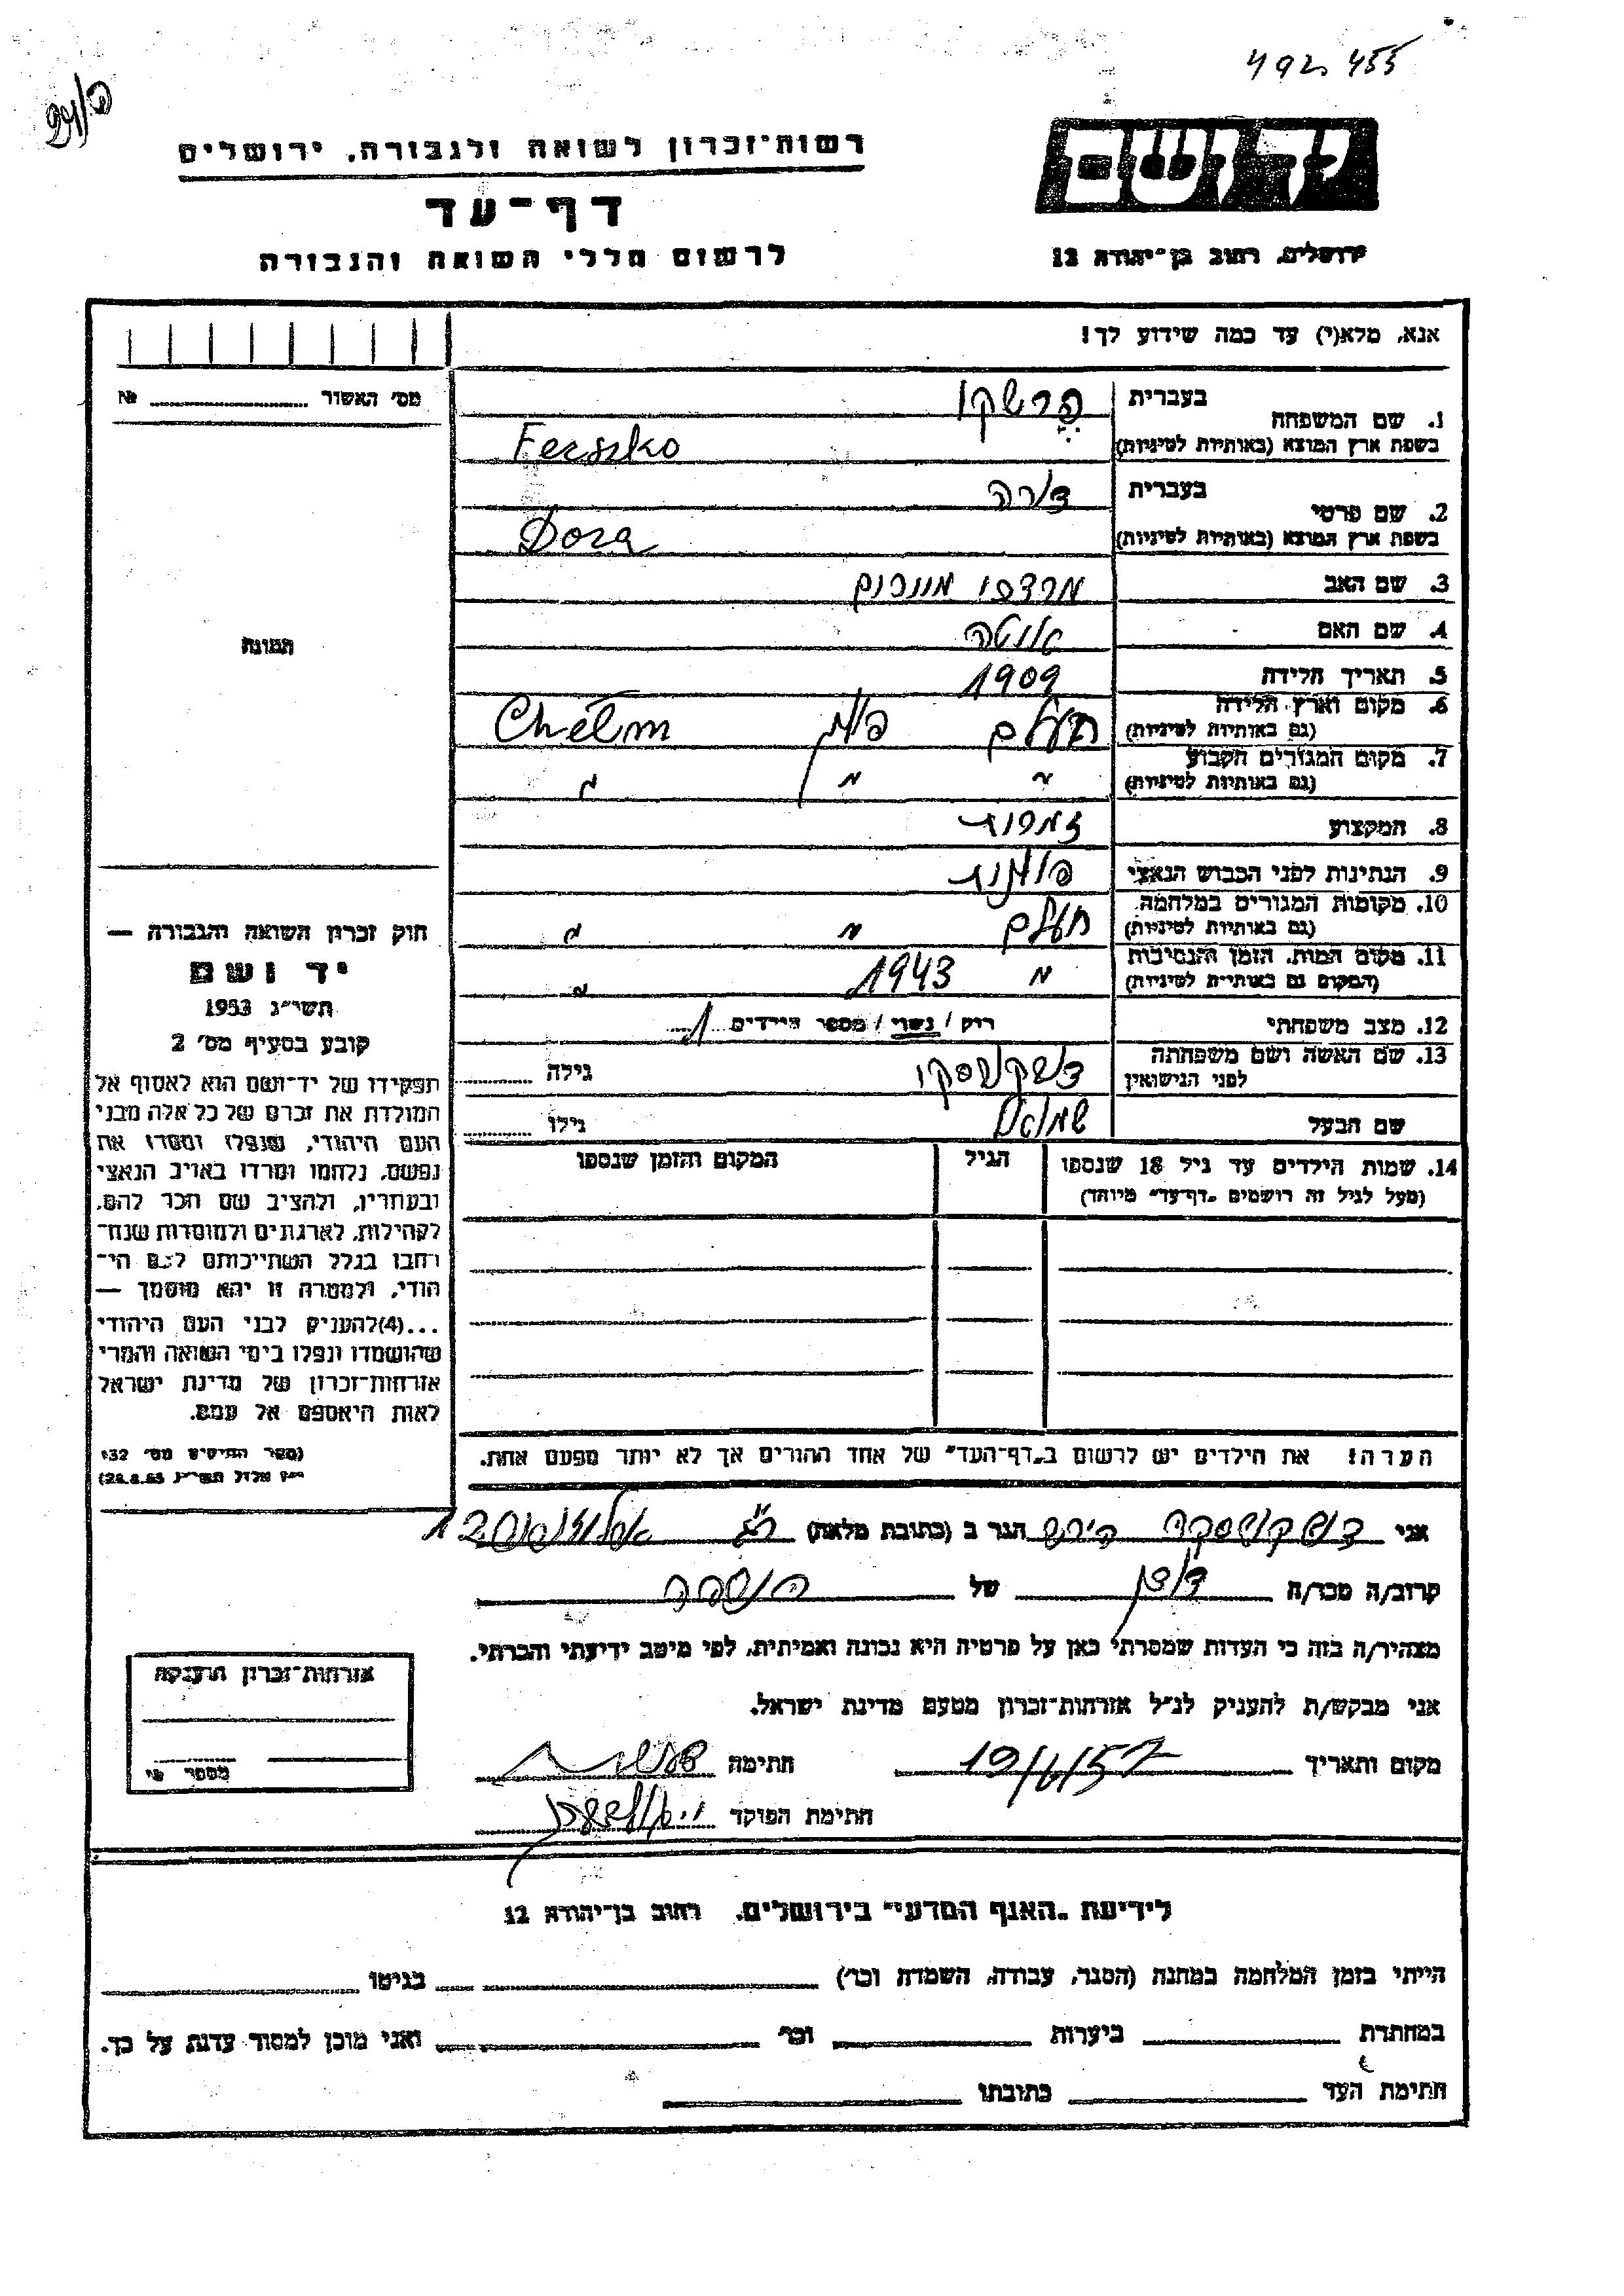 492 455
רשות־זכרון לשואה ולגבורה. ירושלים
דף־עד
לרשום חללי השואה והגבורה
יד ושם
ירושלים, רחוב בן־יהודה 12
אנא, מלא(י) עד כמה שידוע לך!
מס׳ האשור № 
1. שם המשפחה בעברית פרשקו
בשפת ארץ המוצא (באותיות לטיניות) Ferszko
2. שם פרטי בעברית דורה
בשפת ארץ המוצא (באותיות לטיניות) Dora
3. שם האב מרדכי מונכום
4. שם האם
תמונה
5. תאריך הלידה 1909
6. מקום וארץ הלידה (גם באותיות לטיניות) חעלם פולין Chełm
7. מקום המגורים הקבוע (גם באותיות לטיניות) " " "
8. המקצוע
9. הנתינות לפני הכבוש הנאצי פולנית
10. מקומות המגורים במלחמה (גם באותיות לטיניות) חעלם " "
11. מקום המות, הזמן והנסיבות (המקום גם באותיות לטיניות) " 1943 "
12. מצב משפחתי רוק / נשוי / מספר הילדים 1
13. שם האשה ושם משפחתה לפני הנישואין גילה
שם הבעל שמואל גילו
חוק זכרון השואה והגבורה —
יד ושם
תשי״ג 1953
קובע בסעיף מס׳ 2
תפקידו של יד־ושם הוא לאסוף אל
המולדת את זכרם של כל אלה מבני
העם היהודי, שנפלו ומסרו את
נפשם, נלחמו ומרדו באויב הנאצי
ובעוזריו, ולהציב שם וזכר להם,
לקהילות, לארגונים ולמוסדות שנח־
רבו בגלל השתייכותם לעם הי־
הודי, ולמטרה זו יהא מוסמך —
...(4) להעניק לבני העם היהודי
שהושמדו ונפלו בימי השואה והמרי
אזרחות־זכרון של מדינת ישראל
לאות היאספם אל עמם.
(ספר החוקים מס׳ 132
14. שמות הילדים עד גיל 18 שנספו הגיל המקום והזמן שנספו
(מעל לגיל זה רושמים „דף־עד״ מיוחד)
הערה! את הילדים יש לרשום ב„דף־העד״ של אחד ההורים אך לא יותר מפעם אחת.
אני הגר ב (כתובת מלאה)
קרוב/ה מכר/ה דודן של
מצהיר/ה בזה כי העדות שמסרתי כאן על פרטיה היא נכונה ואמיתית, לפי מיטב ידיעתי והכרתי.
אני מבקש/ת להעניק לנ״ל אזרחות־זכרון מטעם מדינת ישראל.
מקום ותאריך חתימה
חתימת הפוקד
אזרחות־זכרון הוענקה
מספר
לידיעת „האגף המדעי״ בירושלים, רחוב בן־יהודה 12
הייתי בזמן המלחמה במחנה (הסגר, עבודה, השמדה וכו׳) בגיטו
במחתרת ביערות וכו׳ ואני מוכן למסור עדות על כך.
חתימת העד כתובתו